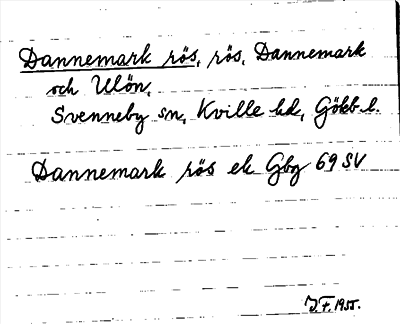 Dannemark rös, rös, Dannemark
och Ulön,
Svenneby sn, Kville hd, Götеb. l.
Dannemark rös ek Gbg 69 SV
J.F. 1955.